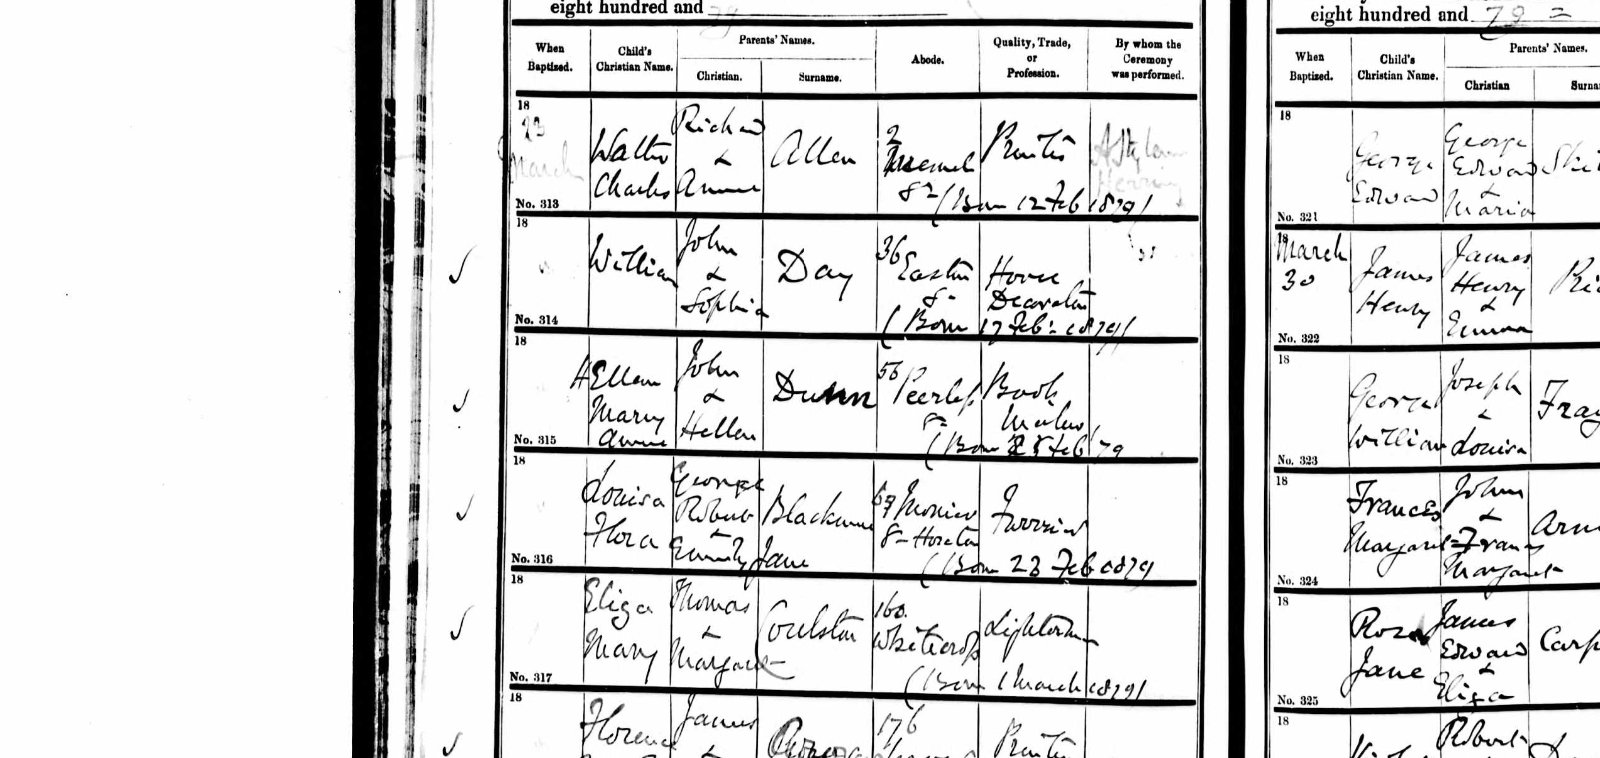 eight hundred and
When Baptized.
Child's Christian Name.
Parents' Names.
Christian.
Surname.
Abode.
Quality, Trade, or Profession.
By whom the Ceremony was performed.
18
23
March
Walter
Charles
Richard
&
Annie
Allen
2
St
Printer
(Born 12 Feb 1879)
No. 313
18
William
John
&
Sophia
Day
36
Easton
St
House
Decorator
(Born 17 Feb: 1879)
No. 314
18
HEllen
Mary
Anne
John
&
Hellen
Dunn
56
Peerless
St
Book
Maker
(Born Feb 79
No. 315
18
Louisa
Flora
George
Robert
&
Emily Jane
Blackmore
67
St Hoxton
Furrier
(Born 23 Feb 1879
No. 316
18
Eliza
Mary
Thomas
&
Margaret
Coulston
160
Whitecross
Lighterman
(Born 1 March 1879)
No. 317
18
Florence
James
&
176
Printer
eight hundred and 79 =
When Baptized.
Child's Christian Name.
Parents' Names.
Christian
Surna
18
George
Edward
George
Edward
&
Maria
No. 321
18
March
30
James
Henry
James
Henry
&
Emma
No. 322
18
George
William
Joseph
&
Louisa
Fray
No. 323
18
Frances
Margaret
John
&
Frances
Margaret
No. 324
18
Rose
Jane
James
Edward
&
Eliza
Carp
No. 325
18
Robert